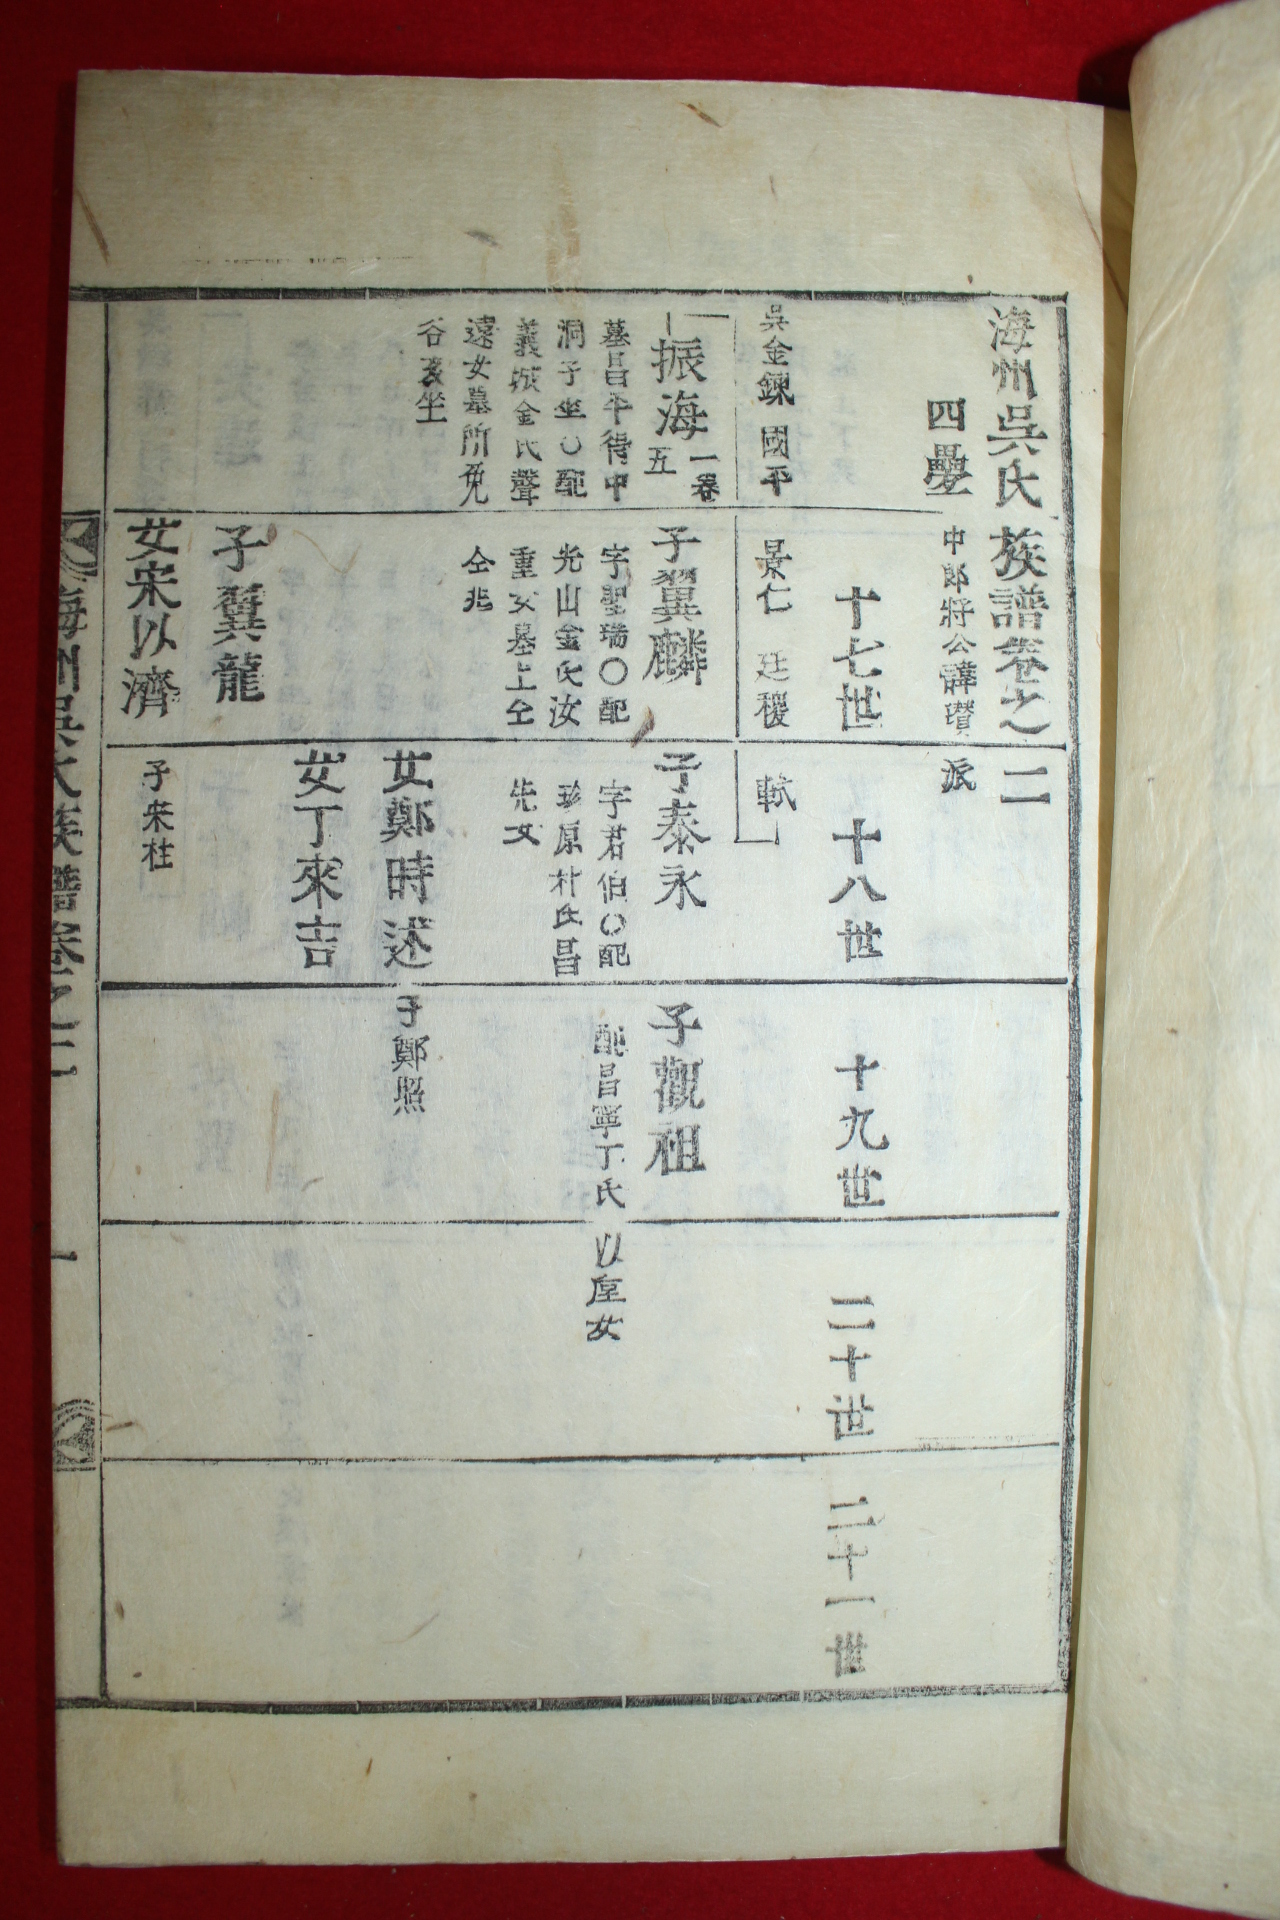 海州吳氏族譜卷之二
四疊
中郎將公諱瓚派
十七世
十八世
十九世
二十世
二十一世
吳金鍊 國平
景仁 廷稷
軾
振海 一卷五
墓昌平得中
洞子坐○配
義城金氏聲
遠女墓所免
谷亥坐
子翼麟
字聖瑞○配
光山金氏汝
重女墓上仝
仝兆
子泰永
字君伯○配
珍原朴氏昌
先女
子觀祖
配昌寧丁氏
以垕女
女鄭時述
子鄭照
女丁來吉
子翼龍
女宋以濟
子宋柱
海州吳氏族譜卷之二
一